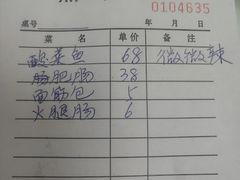 0104635
编号 年 月 日
菜名 单价 备注
酸菜鱼 68 微微辣
肠肥肠 38
面筋包 5
火腿肠 6